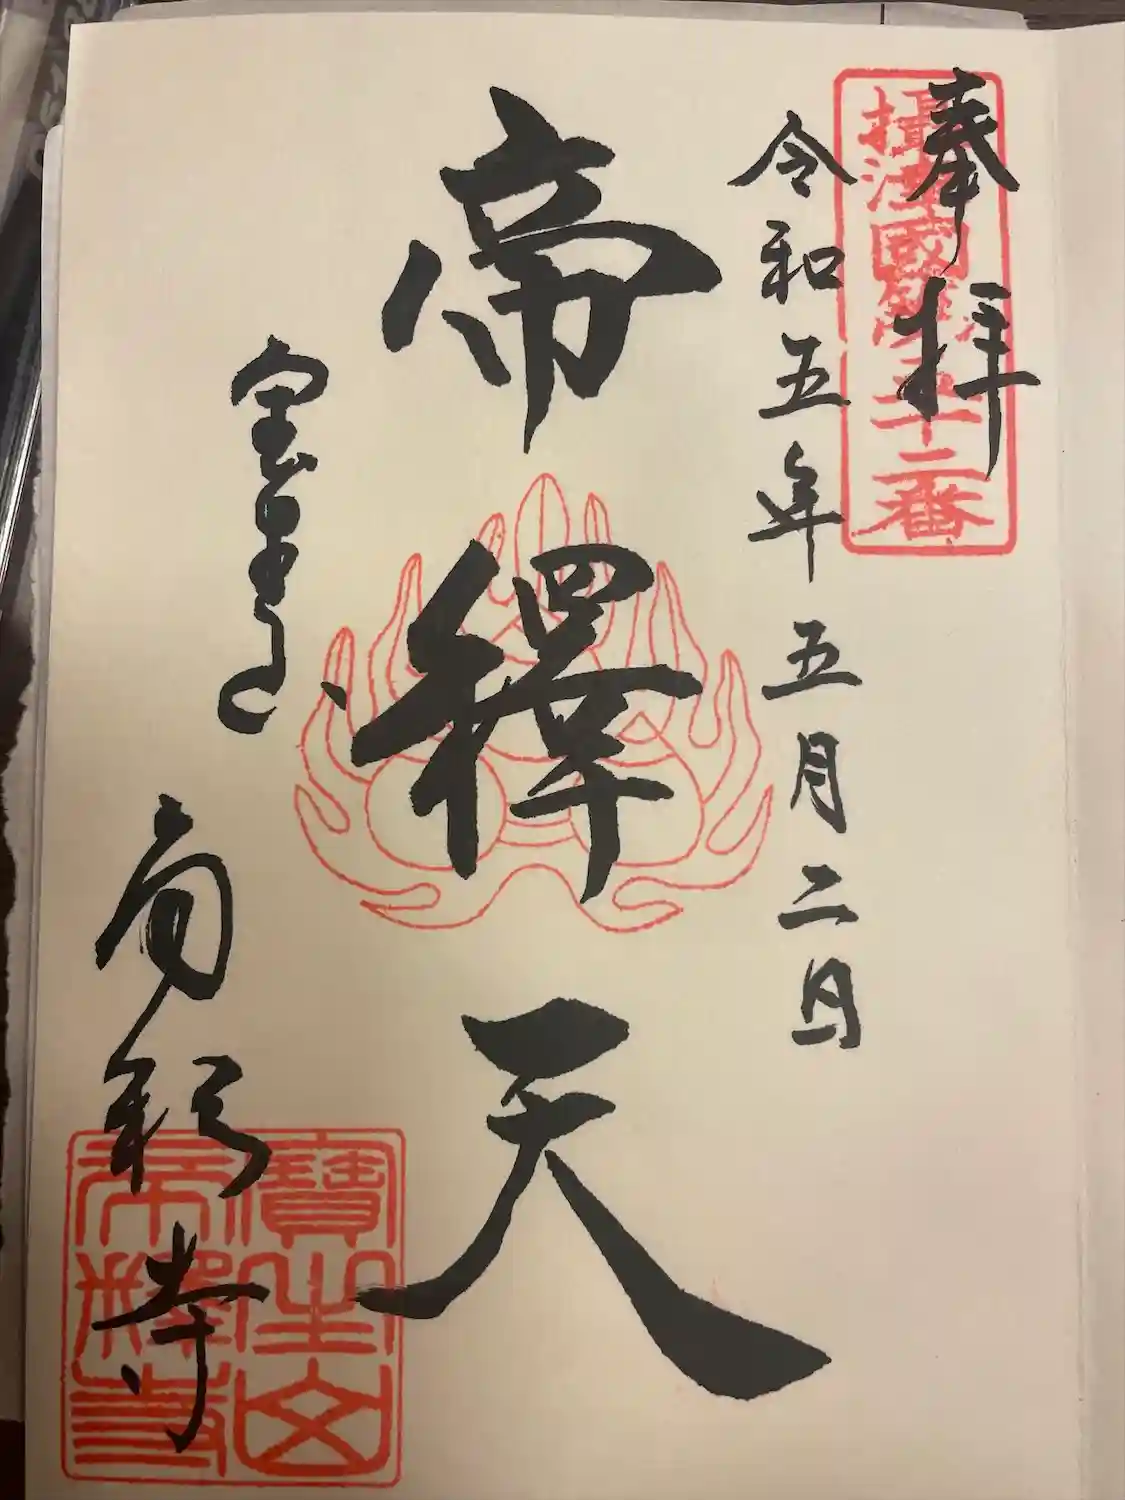 奉拝
攝津國第
十二番
令和五年五月二日
帝釋天
帝釈寺
寶生山
帝釋寺